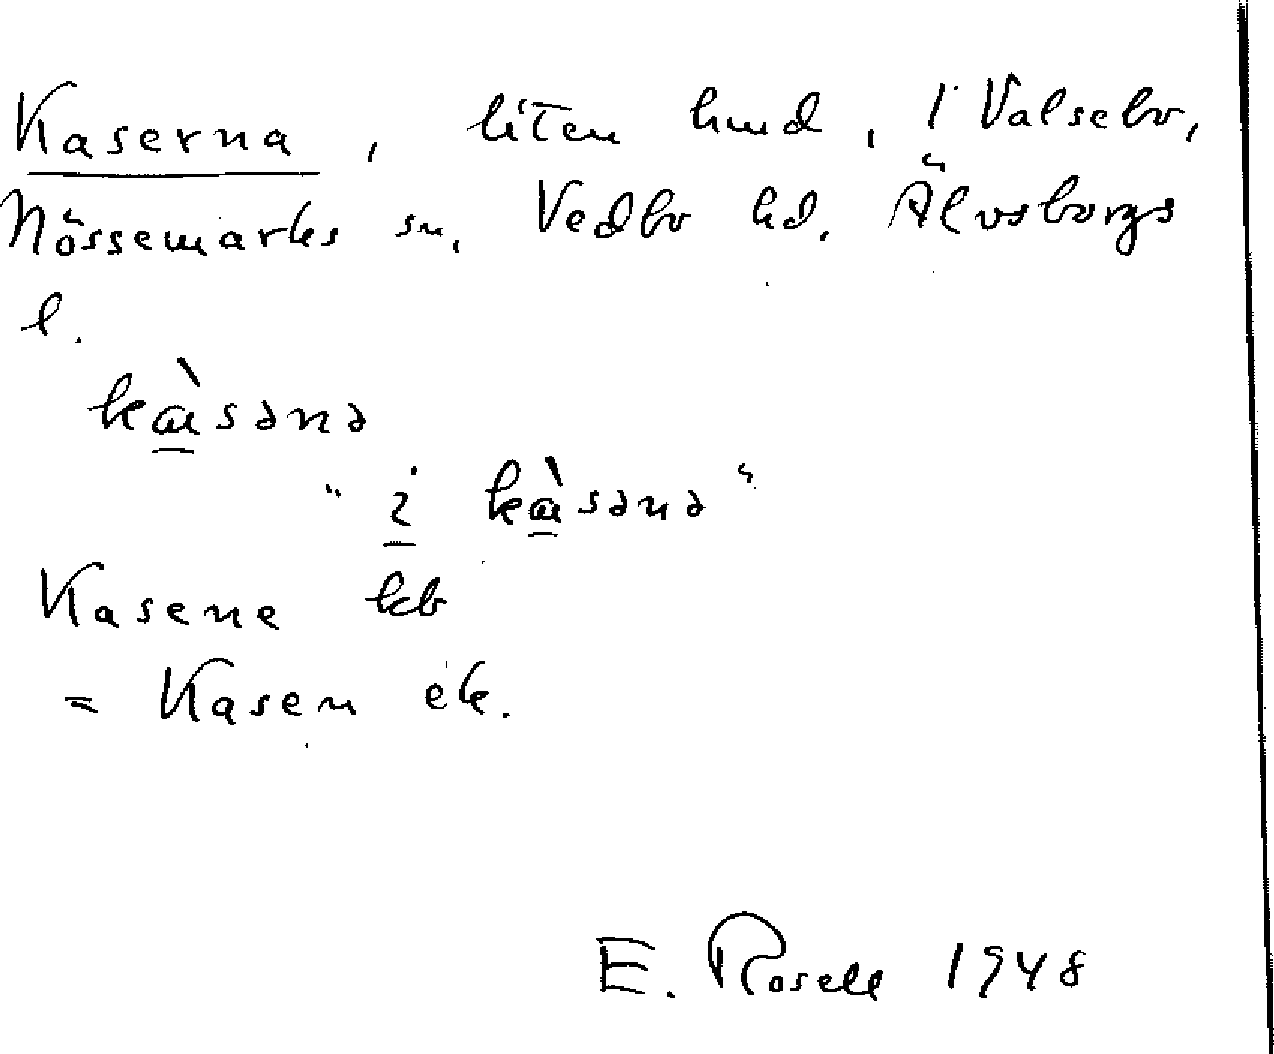 Kaserna, liten hmd, i Valsebo,
Nössemarks sn, Vedbo hd. Älvsborgs
l.
kàsənə
" i kàsənə "
Kasene kb
= Kasen ek.
E. Rosell 1948